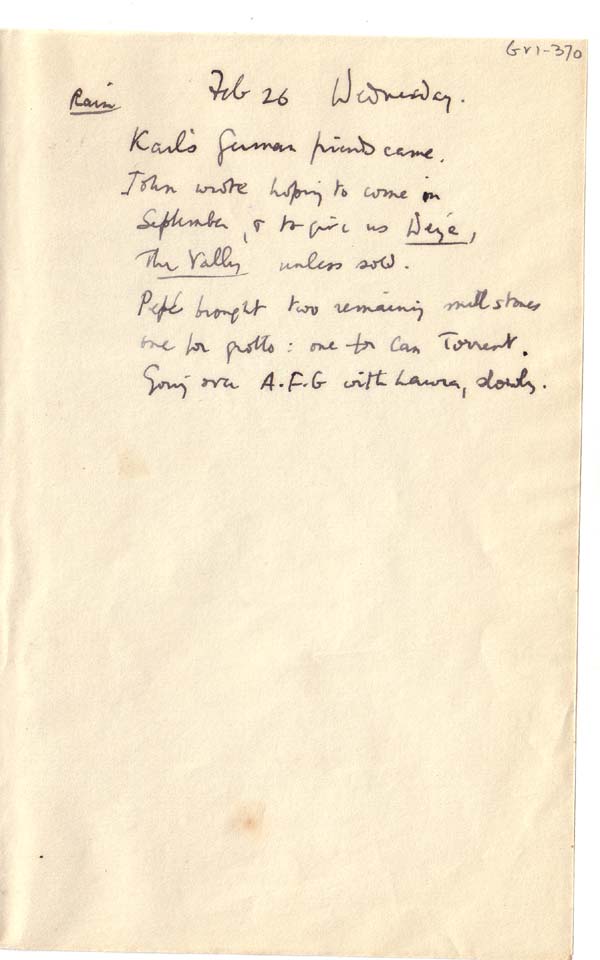 GVI-370
Rain Feb 26 Wednesday.
Karl's German friends came.
John wrote hoping to come in
September, & to give us Deyá,
The Valley unless sold.
Pepé brought two remaining mill stones
one for grotto: one for Can Torrent.
Going over A.F.G with Laura, slowly.